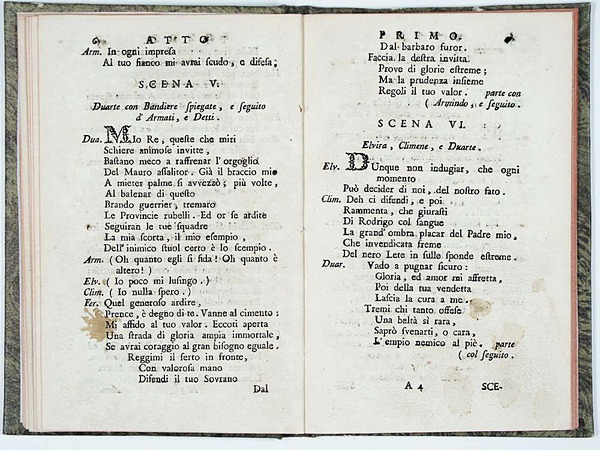 6 ATTO
Arm. In ogni impresa
Al tuo fianco mi avrai scudo, e difesa;
SCENA V.
Duarte con Bandiere spiegate, e seguito
d' Armati, e Detti.
Dua. MIo Re, queste che miri
Schiere animose invitte,
Bastano meco a raffrenar l'orgoglio
Del Mauro assalitor. Già il braccio mio
A mieter palme si avvezzò; più volte,
Al balenar di questo
Brando guerrier, tremaro
Le Provincie rubelli. Ed or se ardite
Seguiran le tue squadre
La mia scorta, il mio esempio,
Dell' inimico stuol certo è lo scempio.
Arm. (Oh quanto egli si fida! Oh quanto è
altero!)
Elv. (Io poco mi lusingo.)
Clim. (Io nulla spero.)
Fer. Quel generoso ardire,
Prence, è degno di te. Vanne al cimento:
Mi affido al tuo valor. Eccoti aperta
Una strada di gloria ampia immortale,
Se avrai coraggio al gran bisogno eguale.
Reggimi il serto in fronte,
Con valorosa mano
Difendi il tuo Sovrano
Dal
PRIMO.
Dal barbaro furor.
Faccia la destra invitta
Prove di glorie estreme;
Ma la prudenza insieme
Regoli il tuo valor. parte con
( Armindo, e seguito.
SCENA VI.
Elvira, Climene, e Duarte.
Elv. DUnque non indugiar, che ogni
momento
Può decider di noi, del nostro fato.
Clim. Deh ci difendi, e poi
Rammenta, che giurasti
Di Rodrigo col sangue
La grand' ombra placar del Padre mio,
Che invendicata freme
Del nero Lete in sulle sponde estreme.
Duar. Vado a pugnar sicuro:
Gloria, ed amor mi affretta,
Poi della tua vendetta
Lascia la cura a me.
Tremi chi tanto offese
Una beltà sì rara,
Saprò svenarti, o cara,
L'empio nemico al piè. parte
( col seguito.
A 4 SCE-